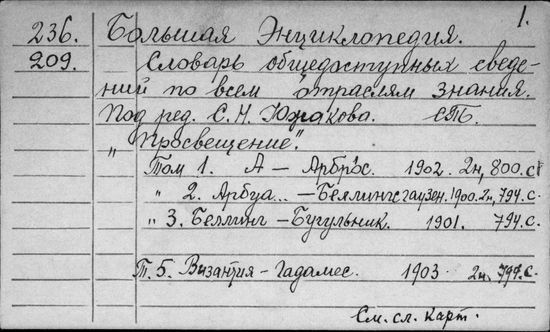 1.
236. Большая Энциклопедия.
209. Словарь общедоступных сведе-
ний по всем отраслям знания.
Под ред. С. Н. Южакова. СПб.
„Просвещение".
Том 1. А — Арброс. 1902. 2н, 800. с
" 2. Арбуа... — Беллинсгаузен. 1900. 2н, 794. с.
" 3. Беллинг — Бугульник. 1901. 794. с.
Т. 5. Византия — Гадамес. 1903. 2н. 794. с.
См. сл. карт.